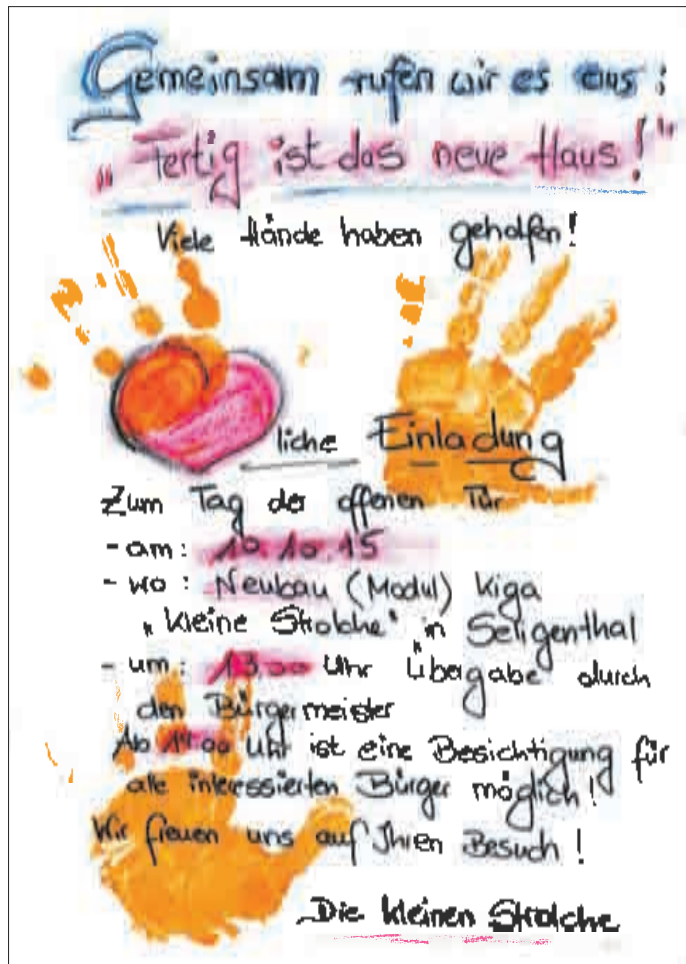 Gemeinsam rufen wir es aus:
"Fertig ist das neue Haus!"
Viele Hände haben geholfen!
liche Einladung
Zum Tag der offenen Tür
- am: 10.10.15
- wo: Neubau (Modul) Kiga
"kleine Strolche" in Seligenthal
- um: 13.00 Uhr Übergabe durch
den Bürgermeister
Ab 14.00 Uhr ist eine Besichtigung für
alle interessierten Bürger möglich!
Wir freuen uns auf Ihren Besuch!
Die kleinen Strolche